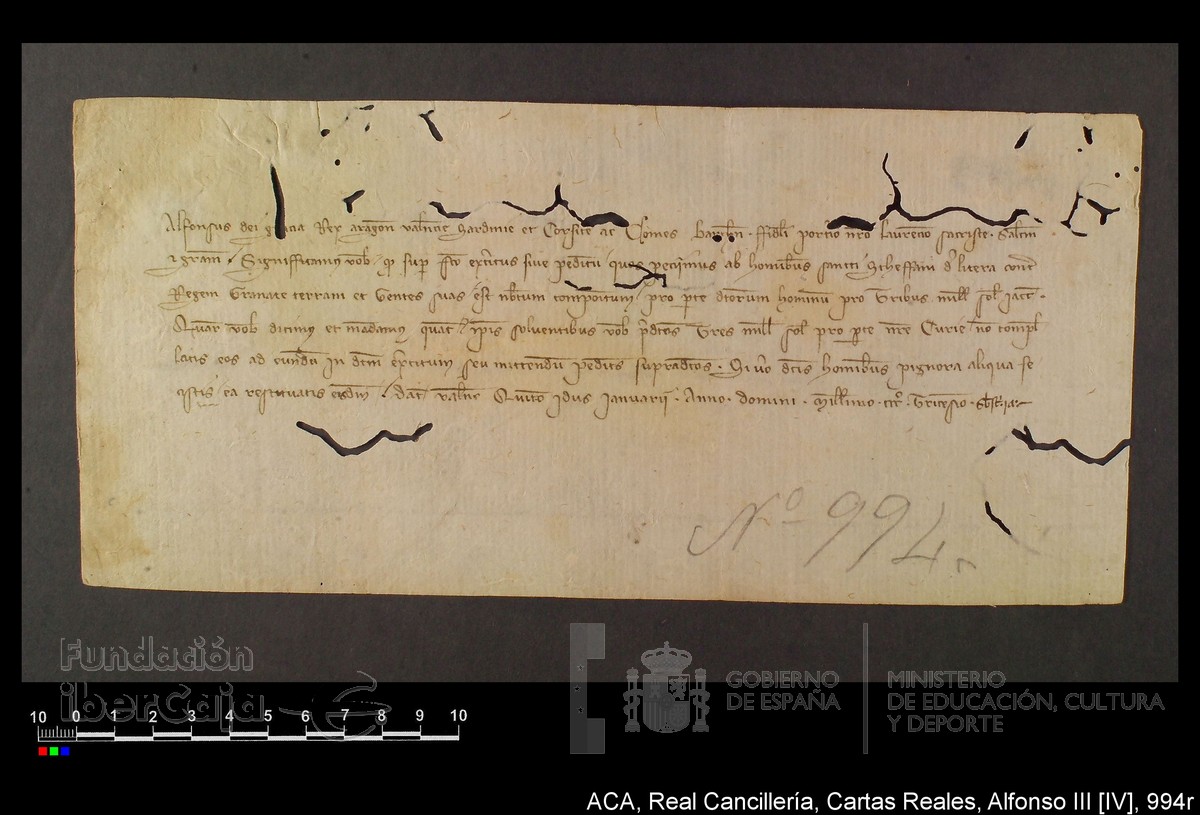 Alfonsus dei gracia Rex aragon valencie Sardinie et Corsice ac Comes Barchn. ffideli porterio nro laurencio sacriste. Saltm
et gram. Significamus vob qd sup fco exercitus sive peditum quos petimus ab hominibus sancti Stheffani de litera contra
Regem Granate terram et Gentes suas est nobiscum compositum pro parte dictorum hominum pro Tribus mill sol Jacc.
Quare vob dicimus et mandamus quatenus ipis solventibus vob predictos Tres mill sol pro parte nre Curie no compel
latis eos ad eundum in dictum exercitum seu mittendum pedites supradictos. Si vero dictis hominibus pignora aliqua fe
cistis ea restituatis eisdem. Dat valencie Quinto idus Januarii. Anno. domini. Millimo. CCC. Tricesimo.
Nº 994.
Fundación
iberCaja
GOBIERNO
DE ESPAÑA
MINISTERIO
DE EDUCACIÓN, CULTURA
Y DEPORTE
10 0 1 2 3 4 5 6 7 8 9 10
ACA, Real Cancillería, Cartas Reales, Alfonso III [IV], 994r